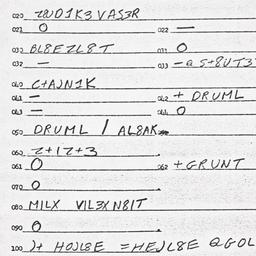 020 ZWD1K3 VAS3R
021 O 022 —
030 BL8EZL8T 031 O
032 — 033 —a S+8UT3
040 C+AJN1K
041 — 042 + DRUML
043 — 044 O
050 DRUML / AL8AK
060 Z+1Z+3
061 O 062 +GRUNT
070 O
080 MILX VIL3X N8IT
090 O
100 )+ HOJL8E =HEJL8E QGOL